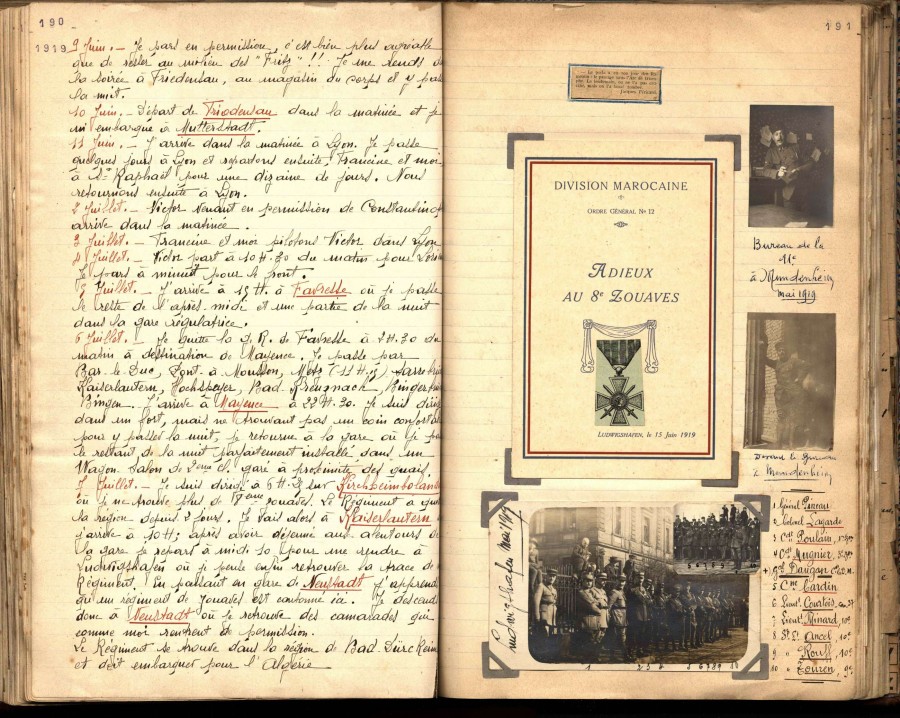 190
1919 9 Juin. – Je pars en permission, c'est bien plus agréable
que de rester au milieu des "Fritz"!! Je me rends
la soirée à Friedensau, au magasin du corps et y
la nuit.
10 Juin. – Départ de Friedensau dans la matinée et
m'embarque à Mutterstadt.
11 Juin. – J'arrive dans la matinée à Lyon. Je passe
quelques jours à Lyon et repartons ensuite, Francine et moi
à St Raphaël pour une dizaine de jours. Nous
retournons ensuite à Lyon.
2 Juillet. – Victor venant en permission de Constantinop
arrive dans la matinée.
3 Juillet. – Francine et moi pilotons Victor dans Lyon
4 Juillet. – Victor part à 10 H. 30 du matin pour
Je pars à minuit pour le front.
Juillet. – J'arrive à 15 H. à Favresse où je passe
le reste de l'après midi et une partie de la nuit
dans la gare régulatrice.
6 Juillet. – Je quitte la G. R. de Favresse à 2 H. 30 du
matin à destination de Mayence. Je passe par
Bar-le-Duc, Pont-à-Mousson, Metz
Kaiserlautern, Hochspeyer, Bad Kreuznach, Binger
Bingen. J'arrive à Mayence à 22 H. 30. Je suis dirig
dans un fort, mais ne trouvant pas un coin confort
pour y passer la nuit, je retourne à la gare où je
le restant de la nuit parfaitement installé dans un
Wagon Salon de 2ème cl. garé à proximité des quais.
7 Juillet. – Je suis dirigé à 6 H. sur Kirchheimboland
où je ne trouve plus de Zouaves. Le Régiment a
la région depuis 2 jours. Je vais alors à Kaiserlautern
j'arrive à 10 H; après avoir déjeuné aux alentours de
la gare je repart à midi 10 pour me rendre à
Ludwigshafen où je pense enfin retrouver la trace du
Régiment. En passant en gare de Neustadt j'apprend
qu'un régiment de Zouaves est cantonné ici. Je descend
donc à Neustadt où je retrouve des camarades qui
comme moi rentrent de permission.
Le Régiment se trouve dans la région de Bad Dürckeim
et doit embarquer pour l'Algérie
191
DIVISION MAROCAINE
ORDRE GÉNÉRAL No 12
ADIEUX
AU 8e ZOUAVES
LUDWIGSHAFEN, le 15 Juin 1919
Bureau de la
11e
à Mundenheim
Mai 1919
Devant le
à Mundenheim
Ludwigshafen Mai 1919
1 Général Pineau
2 Colonel Lagarde
3 Ct Poulain
4 Ct Mugnier
Gal Daugan
5 Cne Cardin
6 Lieut. Courtois
7 Lieut. Thinard, 10e
8 St Lt Ancel, 10e
9 " Rouff, 10e
10 " Touren, 9e